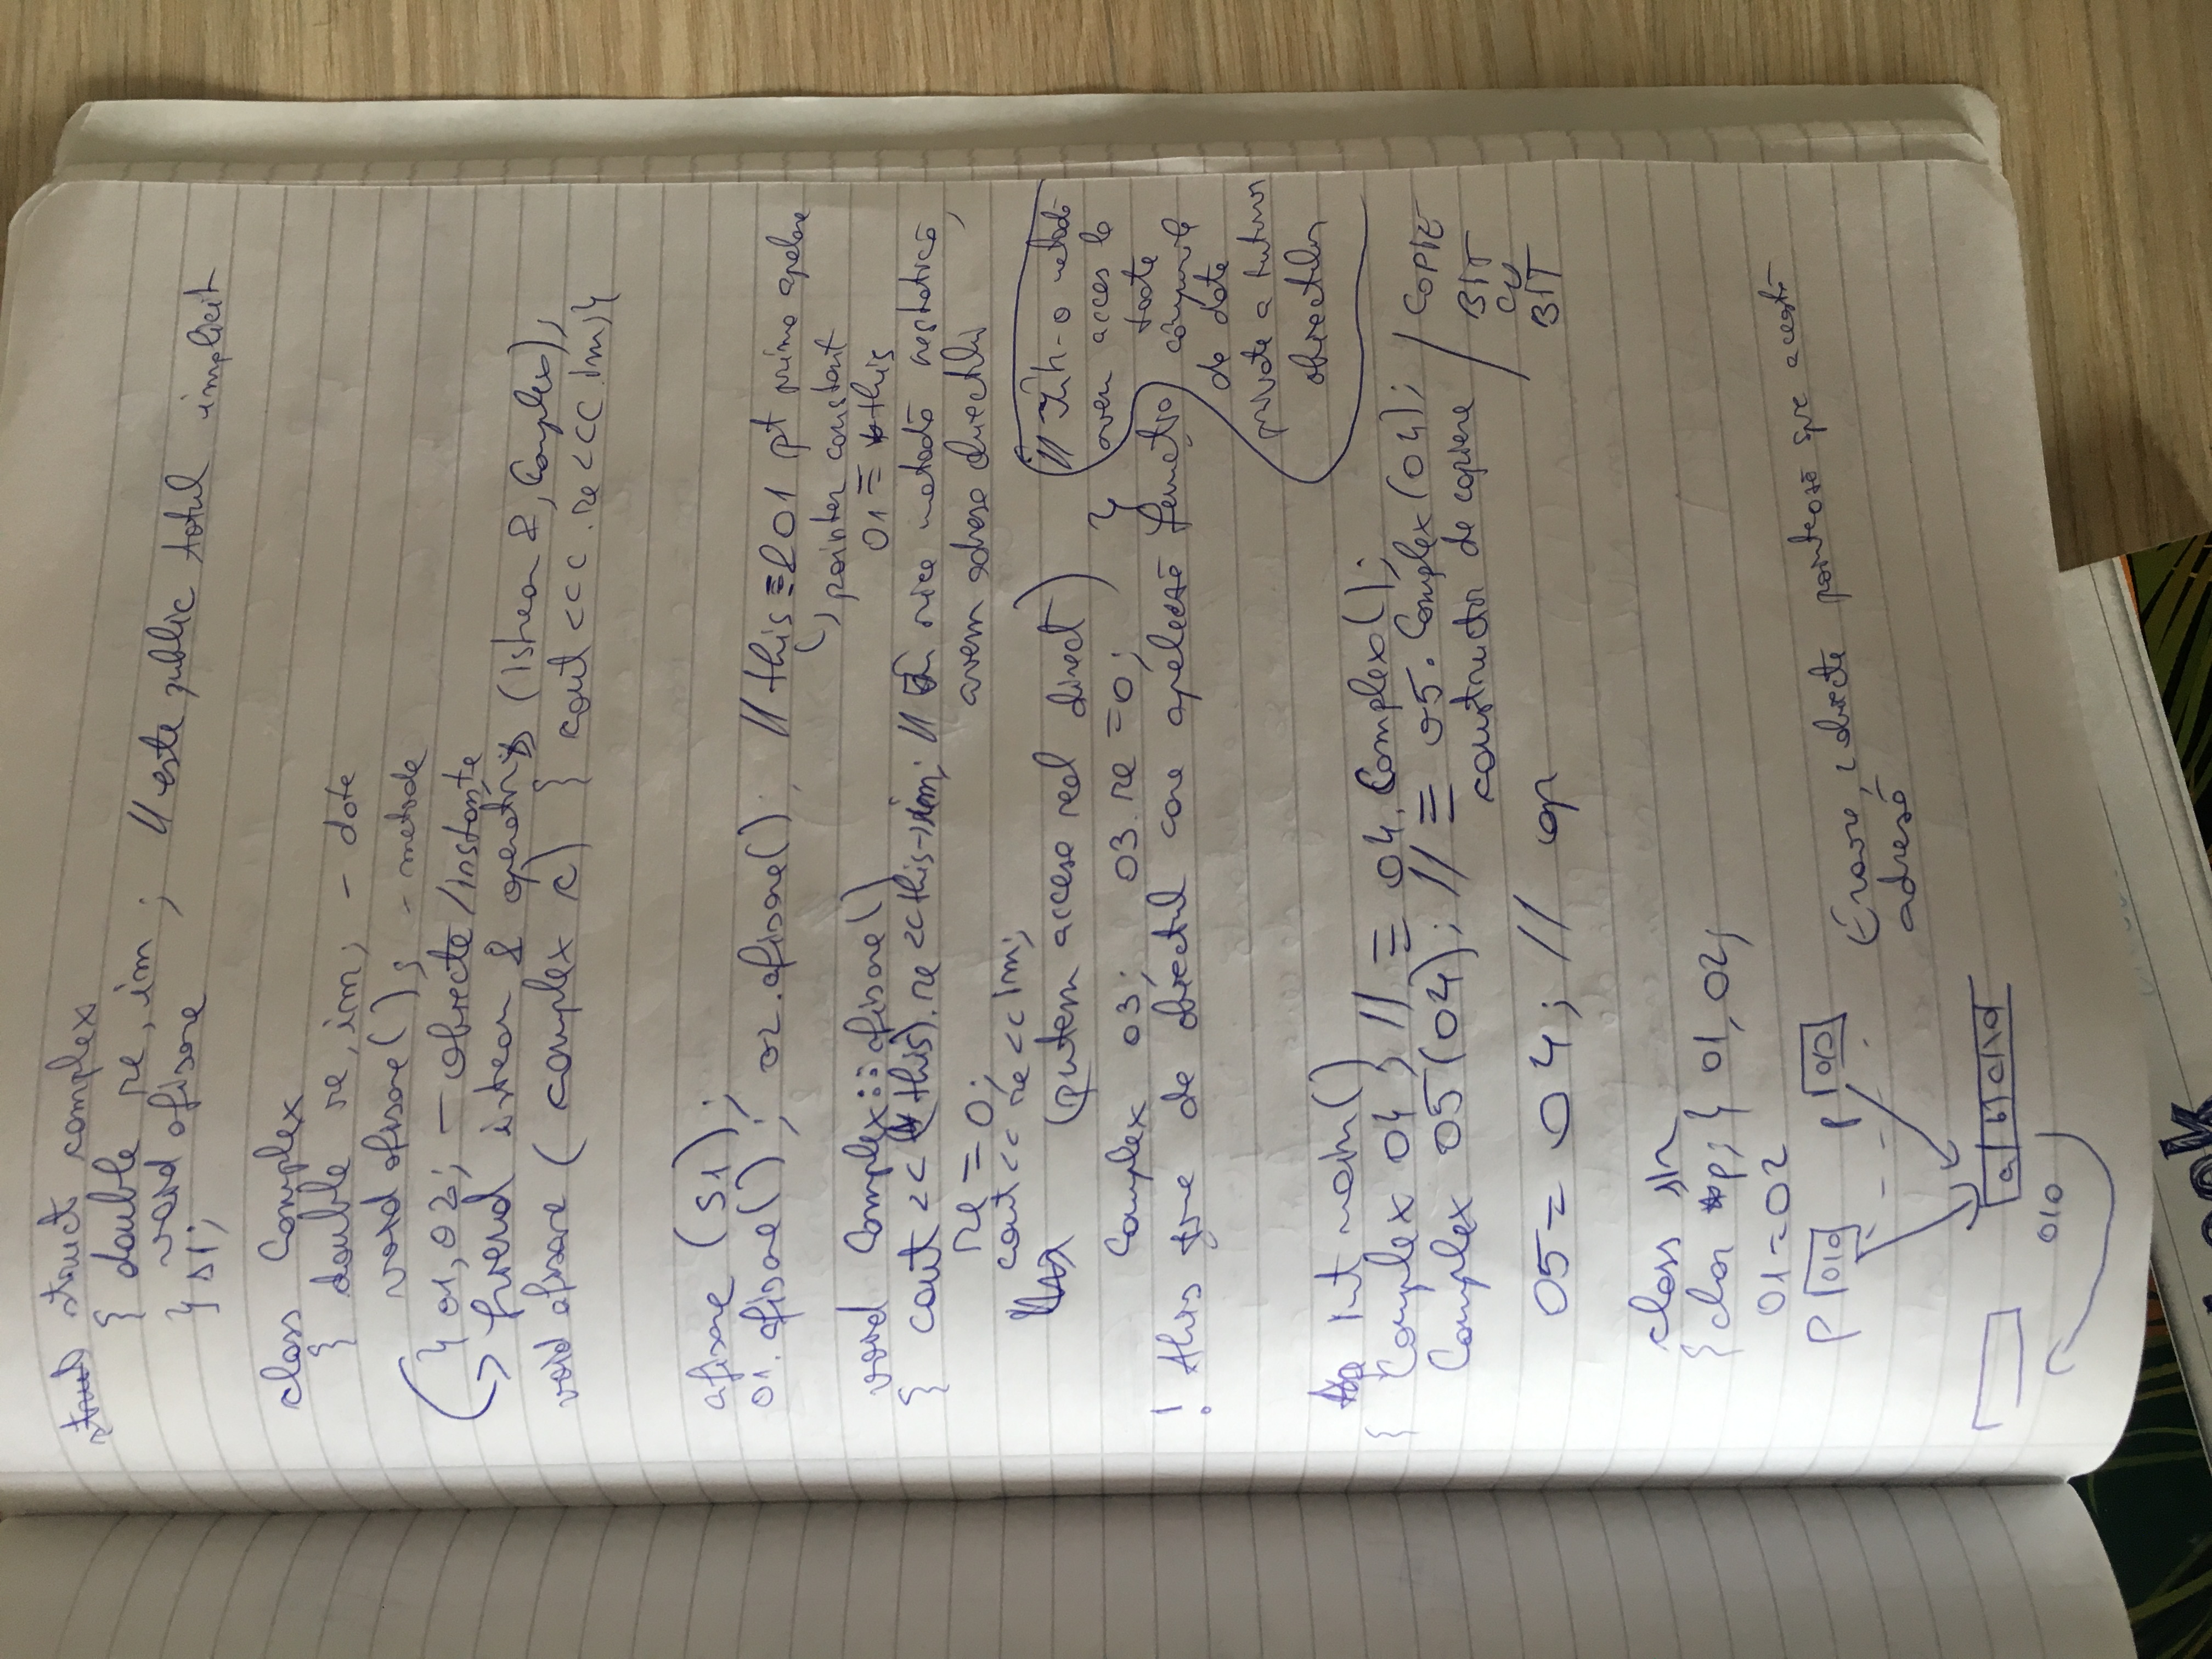 struct complex
{ double re, im; // este public totul implicit
void afisare
} s1;
class Complex
{ double re, im; - date
void afisare(); - metode
} o1, o2; - obiecte/instanțe
friend istream & operator>> (istream &, Complex);
void afisare ( complex c) { cout << c.re << c.im; }
afisare (s1);
o1.afisare(); o2.afisare(); // this ≡ &o1 pt prima apelare
↳ pointer constant
o1 ≡ *this
void Complex::afisare()
{ cout << (*this).re << this->im; // În orice metodă nestatică,
re = 0; avem adresa obiectului
cout << re << im;
(putem accesa real direct)
Complex o3; o3.re = 0; }
// Într-o metodă
avem acces la
toate
câmpurile
de date
private a tuturor
obiectelor
! this ține de obiectul care apelează funcția
int main()
{ Complex o4; // ≡ o4.Complex();
Complex o5(o4); // ≡ o5.Complex(o4);
constructor de copiere
/ COPIE
BIT
CU
BIT
o5 = o4; // op
class str
{ char *p; } o1, o2;
o1 = o2
p 010 p 010
Eroare, 2 obiecte pointează spre această
adresă
a b c d
010
ook